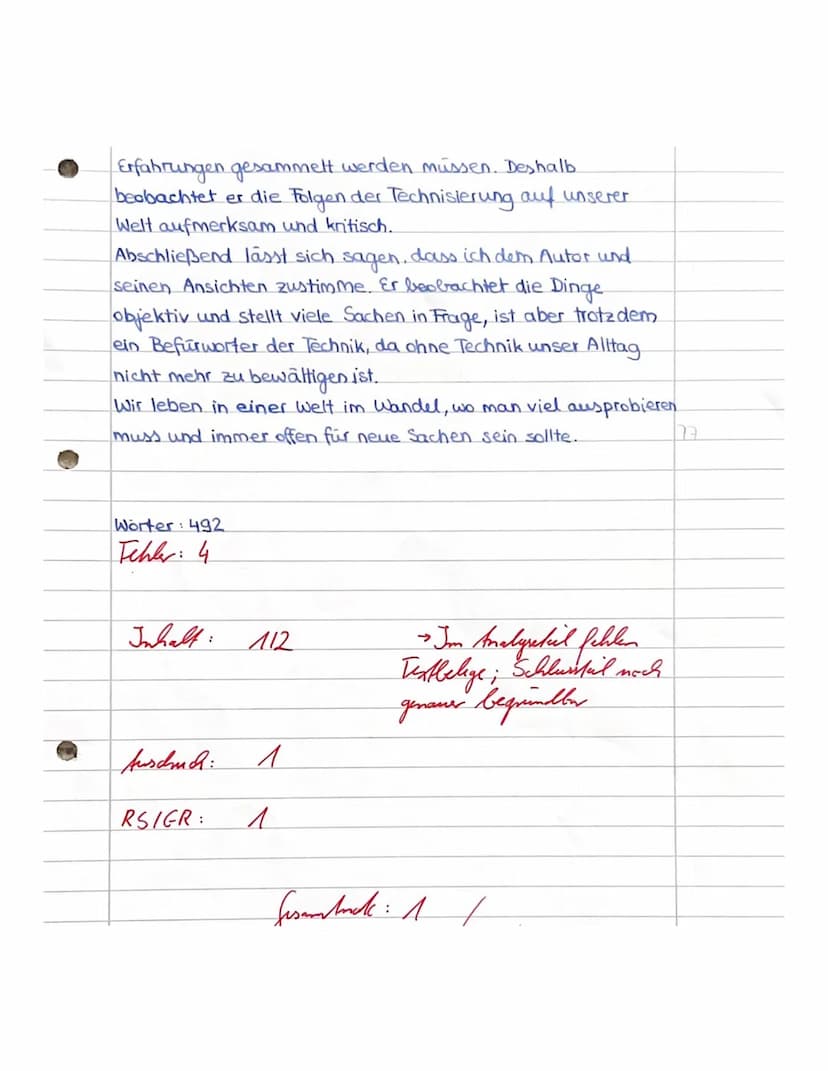 Erfahrungen gesammelt werden müssen. Deshalb
beobachtet er die Folgen der Technisierung auf unserer
Welt aufmerksam und kritisch.
Abschließend lässt sich sagen, dass ich dem Autor und
seinen Ansichten zustimme. Er beobachtet die Dinge
objektiv und stellt viele Sachen in Frage, ist aber trotzdem
ein Befürworter der Technik, da ohne Technik unser Alltag
nicht mehr zu bewältigen ist.
Wir leben in einer Welt im Wandel, wo man viel ausprobieren
muss und immer offen für neue Sachen sein sollte.
Wörter: 492
Fehler: 4
Inhalt: 1/2
→ Im Analyseteil fehlen
Textbelege; Schlussteil noch
genauer begründbar
Ausdruck: 1
RS/GR: 1
Gesamtnote: 1 /